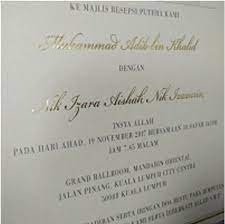 KE MAJLIS RESEPSI PUTERA KAMI
Muhammad Adib bin Khalid
DENGAN
Nik Izara Aishah Nik
INSYA ALLAH
PADA HARI AHAD, 19 NOVEMBER 2017 BERSAMAAN SAFAR
JAM 7.45 MALAM
GRAND BALLROOM, MANDARIN ORIENTAL
JALAN PINANG, KUALA LUMPUR CITY CENTRE
50088 KUALA LUMPUR
SERTA IRINGAN DOA RESTU PARA